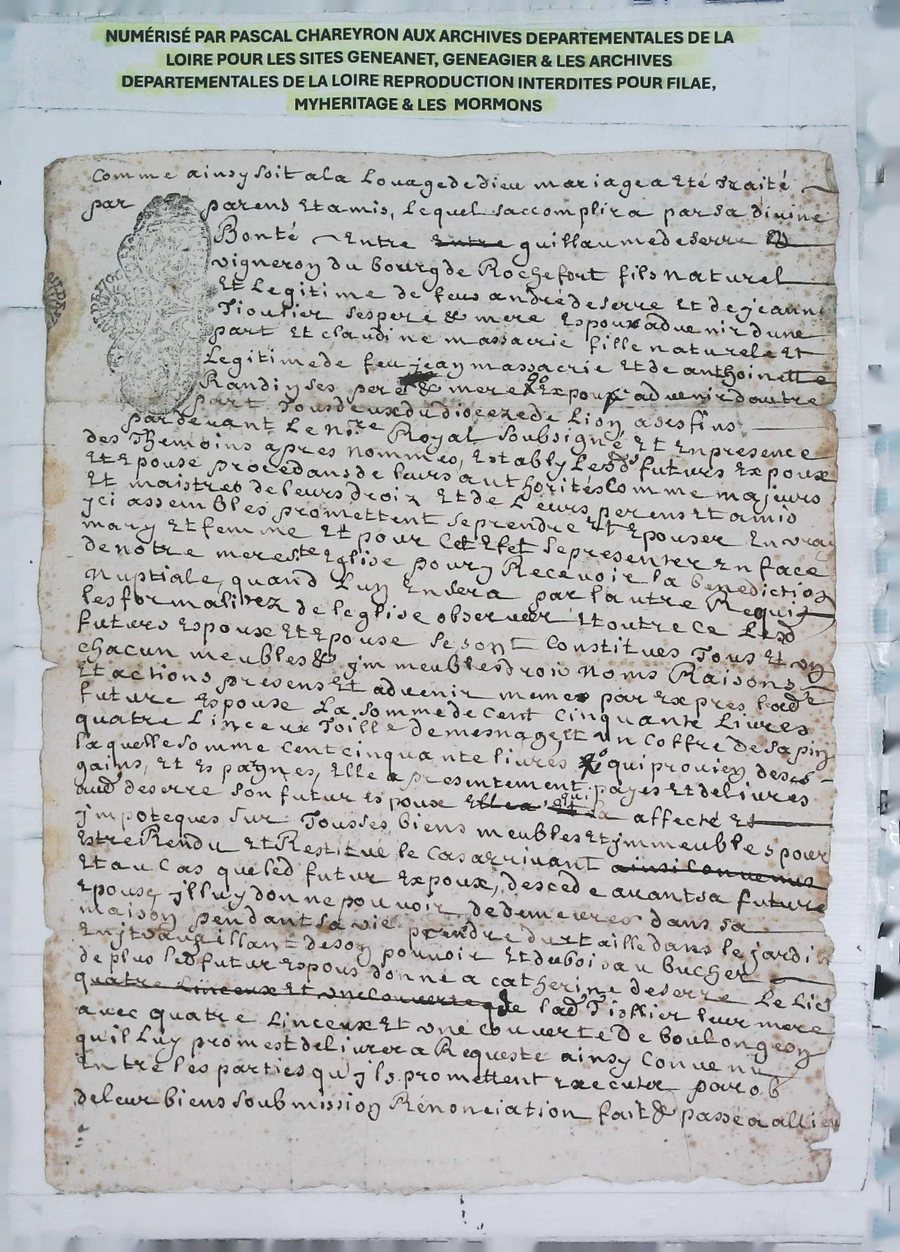 NUMÉRISÉ PAR PASCAL CHAREYRON AUX ARCHIVES DEPARTEMENTALES DE LA
LOIRE POUR LES SITES GENEANET, GENEAGIER & LES ARCHIVES
DEPARTEMENTALES DE LA LOIRE REPRODUCTION INTERDITES POUR FILAE,
MYHERITAGE & LES MORMONS
Comme ainsy soit a la Louage de dieu mariage a Eté Traité
par parens Et amis, Lequel saccomplira par sa divine
Bonté Entre Entre guillaume deserre
vigneron du bourg de Rochefort fils naturel
Et Legitime de feus andré deserre Et de jeann
Tioulier ses pere & mere Espoux advenir dune
part Et claudine massacrie fille naturele Et
Legitime de feu jean massacrie Et de anthoinette
Randiy ses pere & mere Expoux advenir dautre
part Tous deux du dioceze de Lion, a ses fins
pardevant Le Nre Royal soubsigné Et En presence
des Themoins apres nommés, Establys Lesds futurs Expoux
Et Epouse procedans de leurs authorités Comme majeurs
Et maistres de leurs droiz Et de Leurs perens Et amis
jci assemblés promettent se prendre Et Epouser En vray
mary Et femme Et pour Cet Efet se presenter En face
de notre mere ste Eglise pour y Recevoir la benediction
Nuptiale, quand Luy En sera par lautre Requis
les formalitez de leglise observer Et outre Ce Lesd
futurs Espoux Et Epouse se sont Constitués Tous Et un
chacun meubles & jmmeubles drois Noms Raisons
Et actions présens Et advenir memes par Expres ladte
future Espouse La somme de Cent Cinquante Livres
quatre Linceux Toille de mesnage Et un Coffre de sapin
laquelle somme Cent cinquante livres qui provien de ses
gains, Et Espargnes, Elle a presentement payés Et delivrés
aud deserre son futur Espoux qui La affecté Et
jmpoteques sur Tous ses biens meubles Et jmmeubles pour
Estre Rendu Et Restitué le Cas arrivant ainsi Convenus
Et au Cas que led futur Expoux, descede avant sa future
Epouse, jl luy donne pouvoir de demeurer dans sa
maison pendant sa vie prendre durtaille dans le jardi
En jtravaillant de son pouvoir Et du bois au bucher
de plus led futur Espous donne a Catherine deserre Le Lict
quatre Linceux Et une Couverte de lad Tiollier leur mere
avec quatre Linceux Et une couverte De boulongeon
quil Luy promest delivrer a Requeste ainsy Convenu
Entre les parties quyls promettent Executer par ob
de leur biens soubmission Renonciation fait & passé a allieu